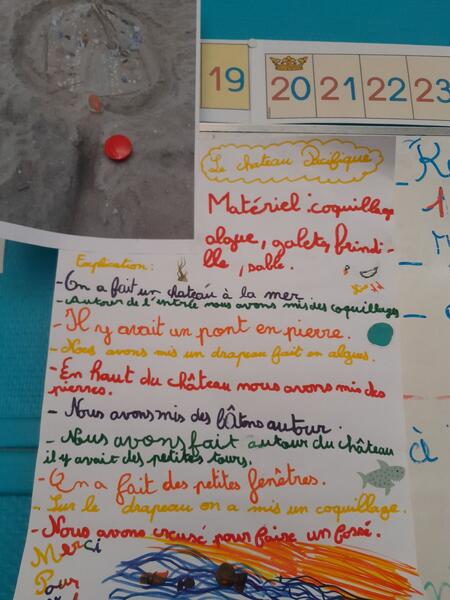 19 20 21 22 23
Le chateau Pacifique
Matériel : coquillage
algue, galets, brindi-
lle, sable.
Explication :
- On a fait un chateau à la mer
- Autour de l'entrée nous avons mis des coquillages
- Il y avait un pont en pierre.
- Nous avons mis un drapeau fait en algues.
- En haut du château nous avons mis des
pierres.
- Nous avons mis des bâtons autour.
- Nous avons fait autour du château
il y avait des petites tours.
- On a fait des petites fenêtres.
- Sur le drapeau on a mis un coquillage.
- Nous avons creusé pour faire un fossé.
Merci
Pour